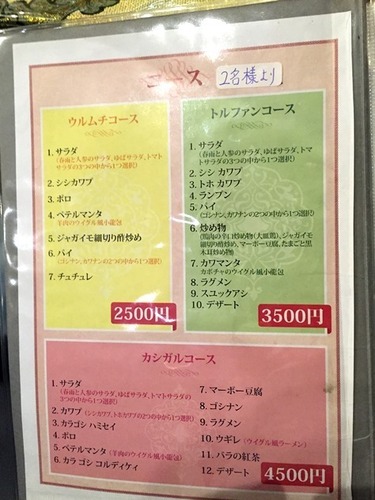 コース 2名様より
ウルムチコース
1. サラダ
(春雨と人参のサラダ、ゆばサラダ、トマト
サラダの3つの中から1つ選択)
2. シシカワプ
3. ポロ
4. ペテルマンタ
(羊肉のウイグル風小龍包)
5. ジャガイモ細切り酢炒め
6. パイ
(ゴシナン、カワナンの2つの中から1つ選択)
7. チュチュレ
2500円
トルファンコース
1. サラダ
(春雨と人参のサラダ、ゆばサラダ、トマト
サラダの3つの中から1つ選択)
2. シシ カワプ
3. トホ カワプ
4. ランプン
5. パイ
(ゴシナン、カワナンの2つの中から1つ選択)
6. 炒め物
(鶏肉の辛口炒め物(大皿鶏)、ジャガイモ
細切り酢炒め、マーボー豆腐、たまごと黒
木耳炒め物)
7. カワマンタ
カボチャのウイグル風小龍包
8. ラグメン
9. スユックアシ
10. デザート
3500円
カシガルコース
1. サラダ
(春雨と人参のサラダ、ゆばサラダ、トマトサラダの
3つの中から1つ選択)
2. カワプ (シシカワプ、トホカワプの2つの中から1つ選択)
3. カラゴシ ハミセイ
4. ポロ
5. ペテルマンタ (羊肉のウイグル風小龍包)
6. カラ ゴシ コルディケィ
7. マーボー豆腐
8. ゴシナン
9. ラグメン
10. ウギレ (ウイグル風ラーメン)
11. バラの紅茶
12. デザート
4500円